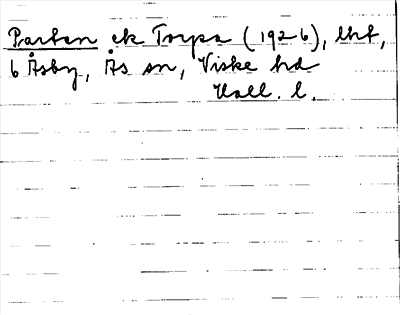 Parten ek Torpa (1926), lht,
6 Åsby, Ås sn, Viske hd
Hall. l.